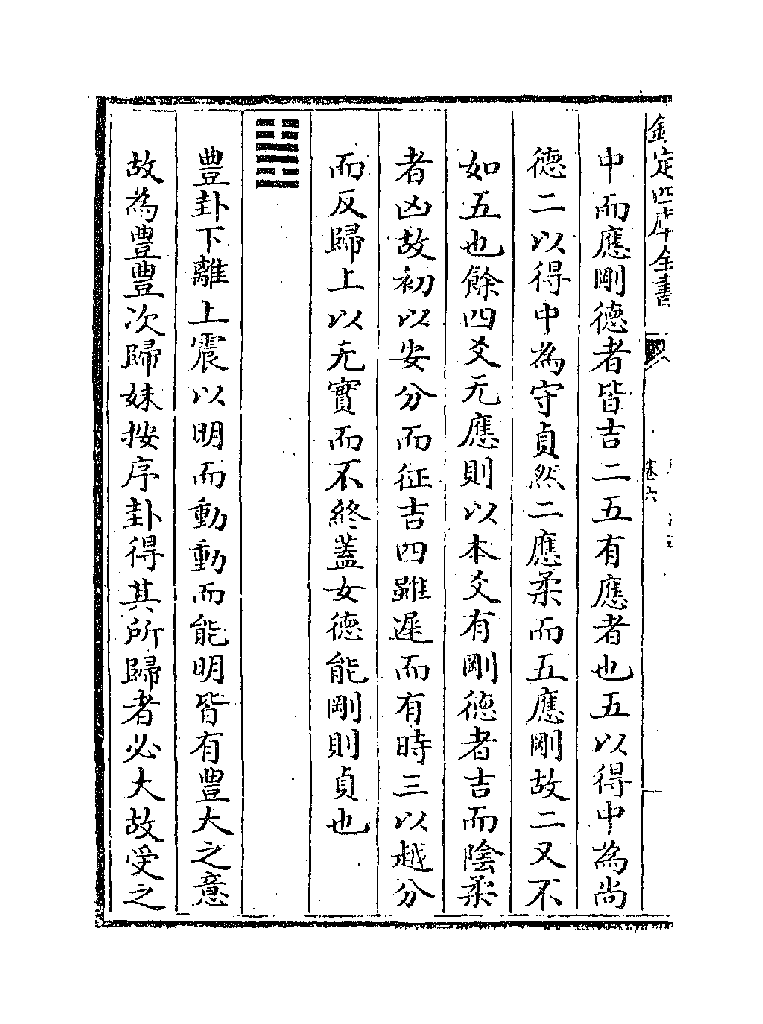 欽定四庫全書
卷六
中而應剛德者皆吉二五有應者也五以得中為尚
德二以得中為守貞然二應柔而五應剛故二又不
如五也餘四爻无應則以本爻有剛德者吉而陰柔
者凶故初以安分而征吉四雖遲而有時三以越分
而反歸上以无實而不終蓋女德能剛則貞也
䷶
豊卦下離上震以明而動動而能明皆有豊大之意
故為豊豊次歸妹按序卦得其所歸者必大故受之